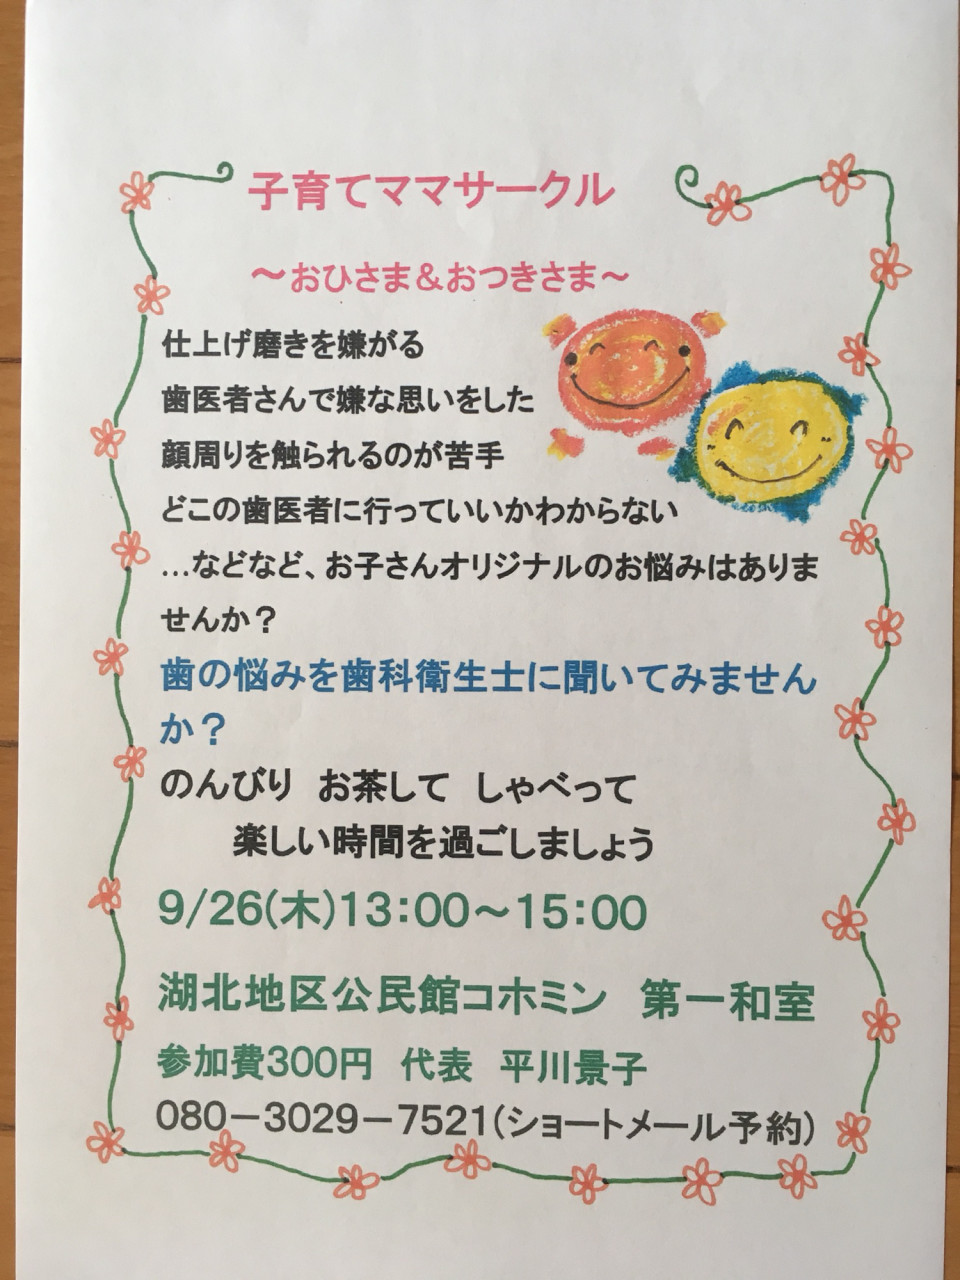 子育てママサークル
～おひさま＆おつきさま～
仕上げ磨きを嫌がる
歯医者さんで嫌な思いをした
顔周りを触られるのが苦手
どこの歯医者に行っていいかわからない
…などなど、お子さんオリジナルのお悩みはありま
せんか？
歯の悩みを歯科衛生士に聞いてみません
か？
のんびり　お茶して　しゃべって
楽しい時間を過ごしましょう
9/26(木)13：00～15：00
湖北地区公民館コホミン　第一和室
参加費300円　代表　平川景子
080－3029－7521(ショートメール予約)